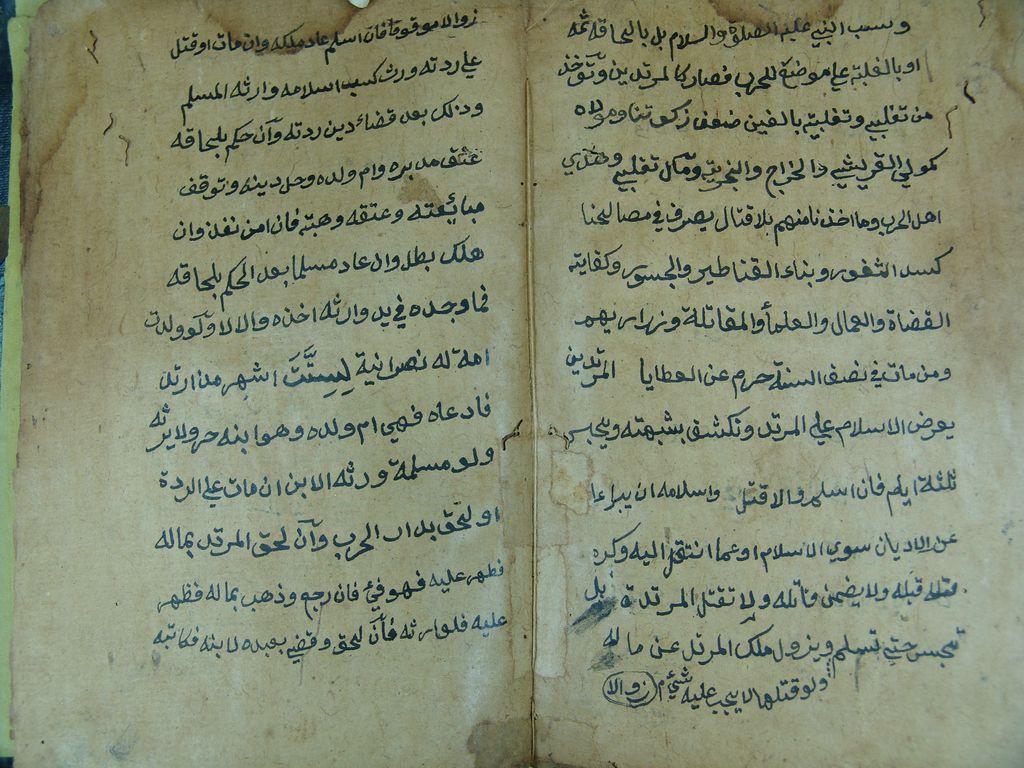 وسب النبي عليه الصلوة والسلام بل بالحاقه ثمه
او بالغلبة علي موضع للحرب فصار كالمرتدين وتؤخذ
من تغلبي وتغلبية بالغين ضعف زكوتنا ومولاه
كمولي القريشي والخراج والجزية ومال تغلبي وهدي
اهل الحرب وما اخذنا منهم بلا قتال يصرف في مصالحنا
كسد الثغور وبناء القناطير والجسور وكفاية
القضاة والعمال والعلمأ والمقاتلة وذراريهم
ومن مات في نصف السنة حرم عن العطايا المرتدين
يعرض الاسلام علي المرتد وتكشف شبهته ويحبس
ثلثة ايام فان اسلم والا قتل واسلامه ان يبرا
عن الاديان سوي الاسلام او عما انتقل اليه وكره
قتله قبله ولا يضمن قاتله ولا تقتل المرتدة بل
تحبس حتي تسلم ويزول ملك المرتد عن ماله
ولو قتلها لا يجب عليه شئ م
زوالا
زوالا موقوفا فان اسلم عاد ملكه وان مات او قتل
علي ردته ورث كسب اسلامه وارثه المسلم
وذلك بعد قضاء دين ردته وان حكم بلحاقه
عتق مدبره وام ولده وحل دينه وتوقف
مبايعته وعتقه وهبته فان امن نفذ وان
هلك بطل وان عاد مسلما بعد الحكم بلحاقه
فما وجده في يد وارثه اخذه والا لا ولو ولدت
امة له نصرانية لستة اشهر مذ ارتد
فادعاه فهي ام ولده وهو ابنه حر ولا يرثه
ولو مسلمة ورثه الابن ان مات علي الردة
او لحق بدار الحرب وان لحق المرتد بماله
فظهر عليه فهو فئ فان رجع وذهب بماله فظهر
عليه فلوارثه فان لحق وقضي بعبده لابنه فكاتبه